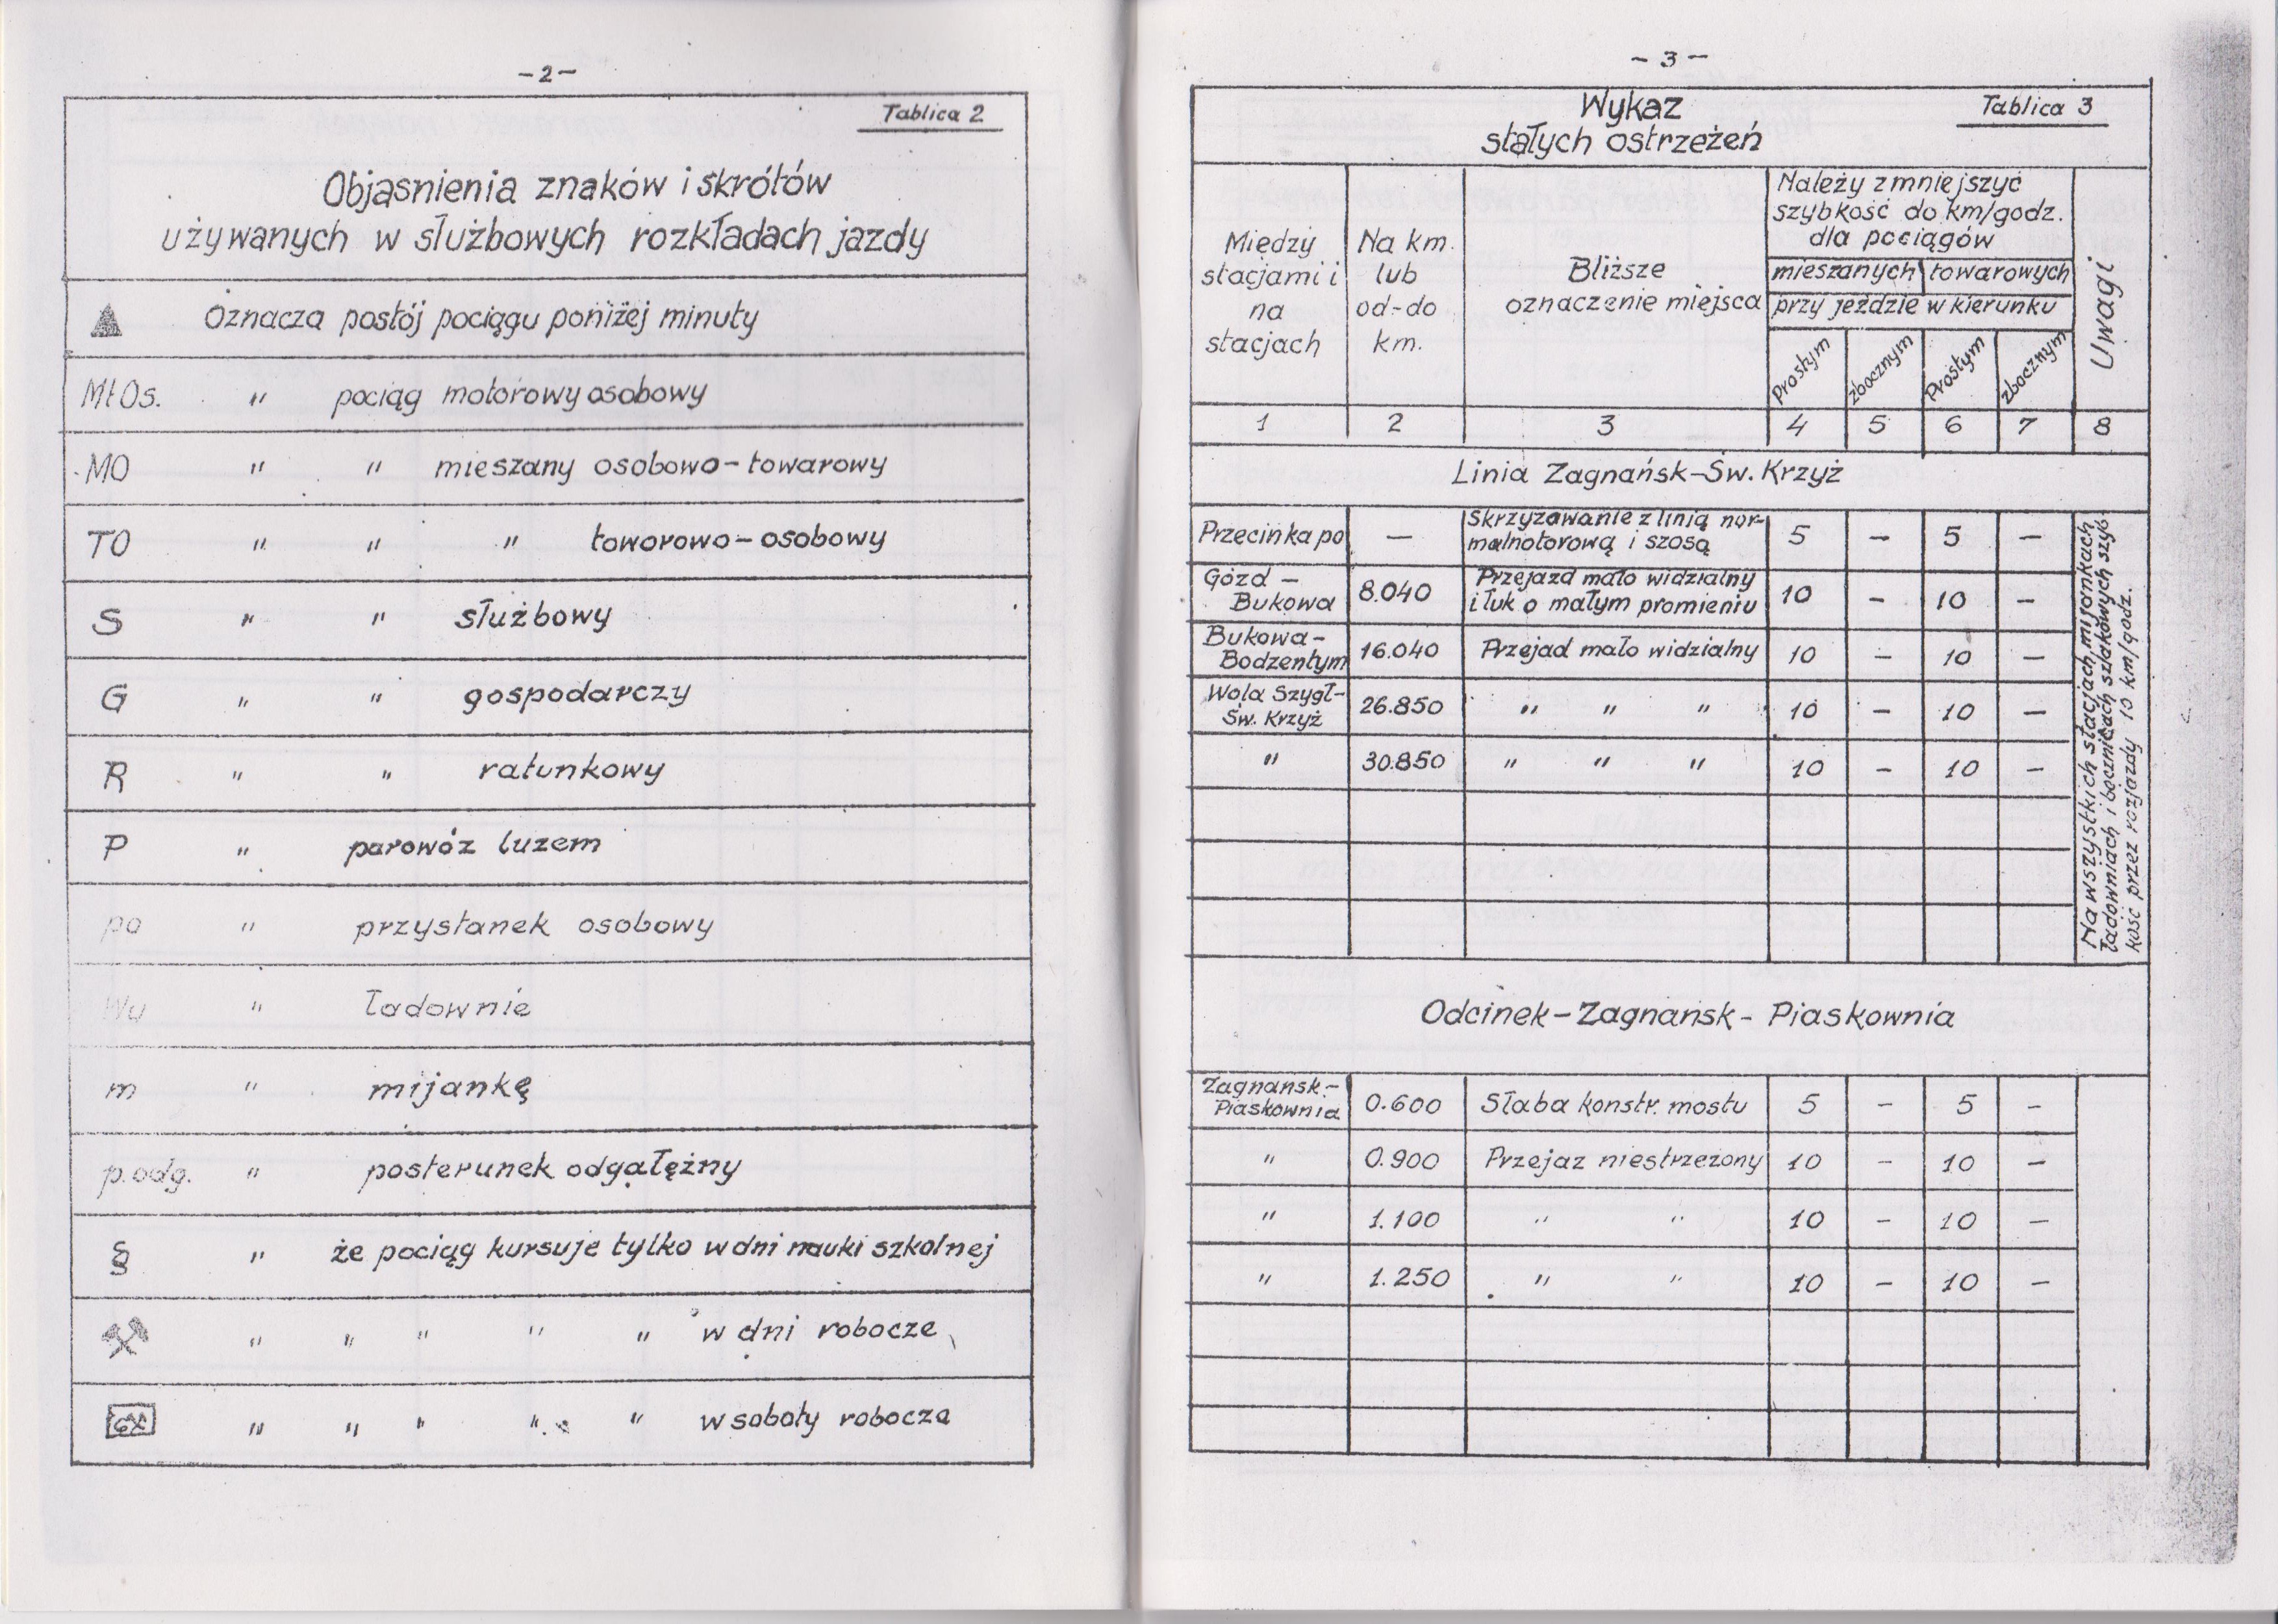 -2-
Tablica 2
Objasnienia znaków i skrótów
używanych w służbowych rozkładach jazdy
▲ Oznacza postój pociągu poniżej minuty
MtOs. " pociąg motorowy osobowy
MO " " mieszany osobowo-towarowy
TO " " " toworowo-osobowy
S " " służbowy
G " " gospodarczy
R " " ratunkowy
P " parowóz luzem
po " przystanek osobowy
Wy " ładownie
m " mijankę
p.odg. " posterunek odgałęźny
§ " że pociąg kursuje tylko w dni nauki szkolnej
⚒ " " " " " w dni robocze
" " " " " w soboty robocze
- 3 -
Wykaz
stałych ostrzeżeń
Tablica 3
Między
stacjami i
na
stacjach
Na km.
lub
od-do
km.
Bliższe
oznaczenie miejsca
Należy zmniejszyć
szybkość do km/godz.
dla pociągów
mieszanych towarowych
przy jeździe w kierunku
Prostym zbocznym Prostym zbocznym
Uwagi
1 2 3 4 5 6 7 8
Linia Zagnańsk-Św. Krzyż
Przecinka po — Skrzyzowanie z linią nor-
malnotorową i szosą 5 — 5 —
Gózd —
Bukowa 8.040 Przejazd mało widzialny
i łuk o małym promieniu 10 — 10 —
Bukowa-
Bodzentyn 16.040 Przejad mało widzialny 10 — 10 —
Wola Szygł-
Św. Krzyż 26.850 " " " 10 — 10 —
" 30.850 " " " 10 — 10 —
Na wszystkich stacjach, mijankach
ładowniach i bocznicach szlakowych szyb-
kość przez rozjazdy 10 km/godz.
Odcinek-Zagnańsk- Piaskownia
Zagnansk-
Piaskownia 0.600 Słaba konstr. mostu 5 — 5 —
" 0.900 Przejaz niestrzezony 10 — 10 —
" 1.100 " " 10 — 10 —
" 1.250 " " 10 — 10 —